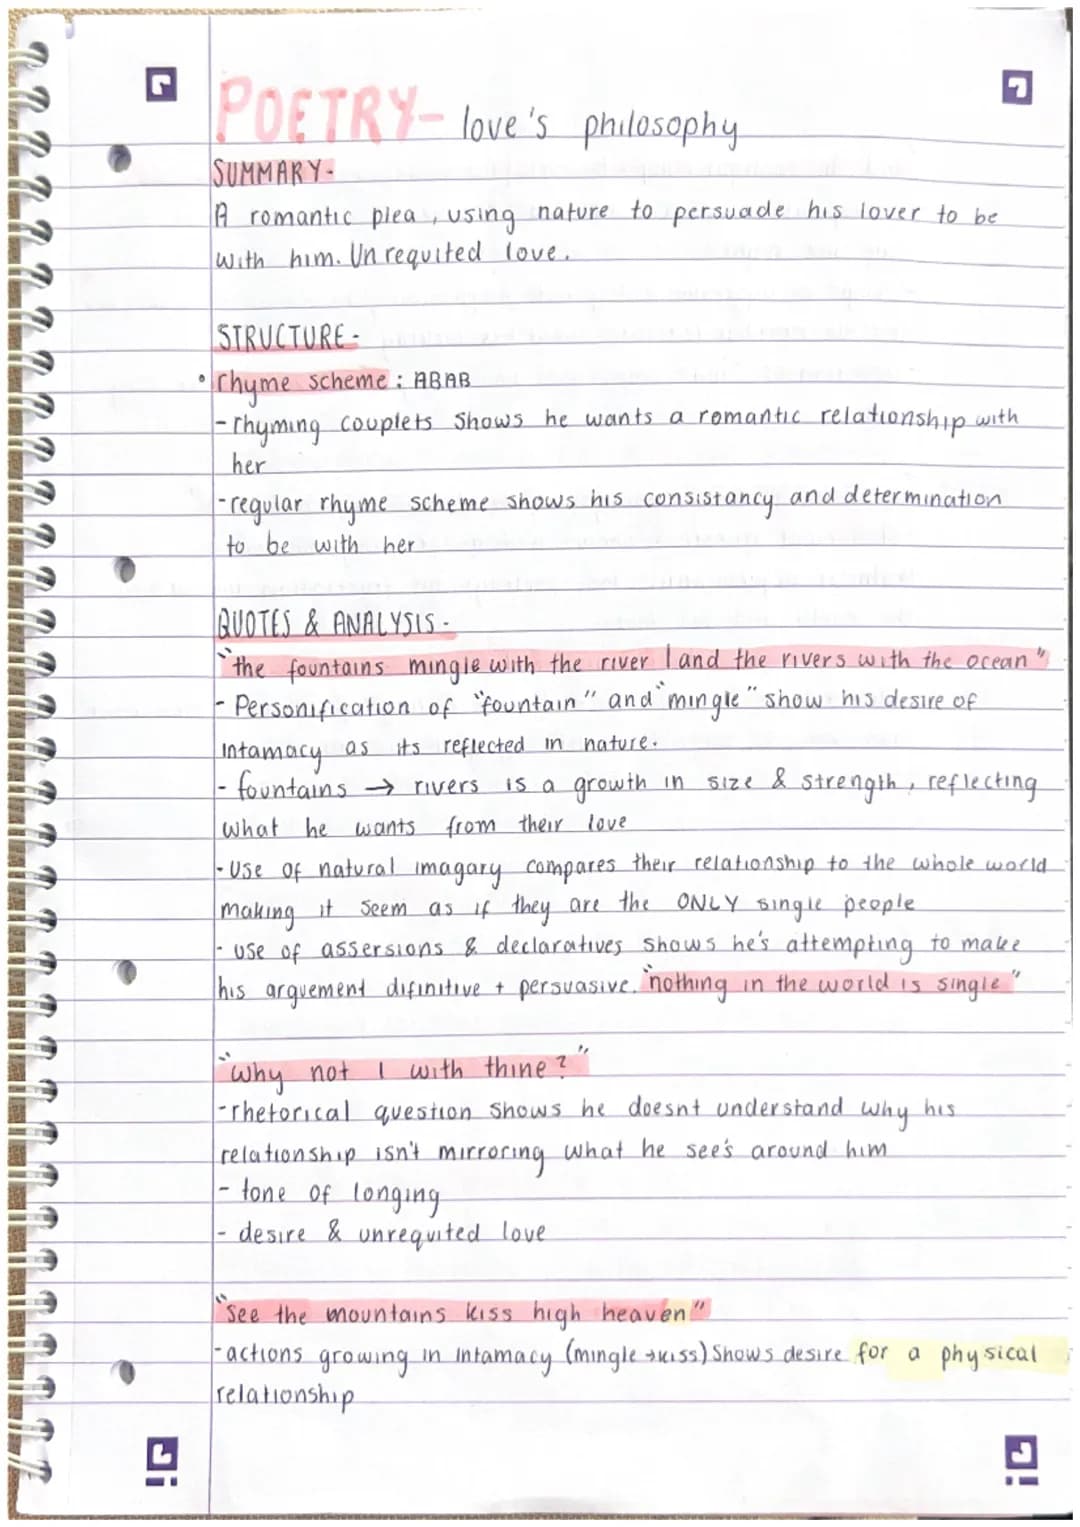 POETRY- love's philosophy
SUMMARY-
A romantic plea, using nature to persuade his lover to be
with him. Unrequited love.
STRUCTURE-
• rhyme scheme: ABAB
-rhyming couplets shows he wants a romantic relationship with
her
-regular rhyme scheme shows his consistancy and determination
to be with her
QUOTES & ANALYSIS-
"the fountains mingle with the river / and the rivers with the ocean"
- Personification of "fountain" and "mingle" show his desire of
intamacy as its reflected in nature.
- fountains → rivers is a growth in size & strength, reflecting
what he wants from their love
-Use of natural imagary compares their relationship to the whole world
making it seem as if they are the ONLY single people
- use of assersions & declaratives shows he's attempting to make
his arguement difinitive + persuasive. "nothing in the world is single"
"why not I with thine?"
-rhetorical question shows he doesnt understand why his
relationship isn't mirroring what he see's around him
- tone of longing
- desire & unrequited love
"see the mountains kiss high heaven"
-actions growing in intamacy (mingle→kiss) shows desire for a physical
relationship